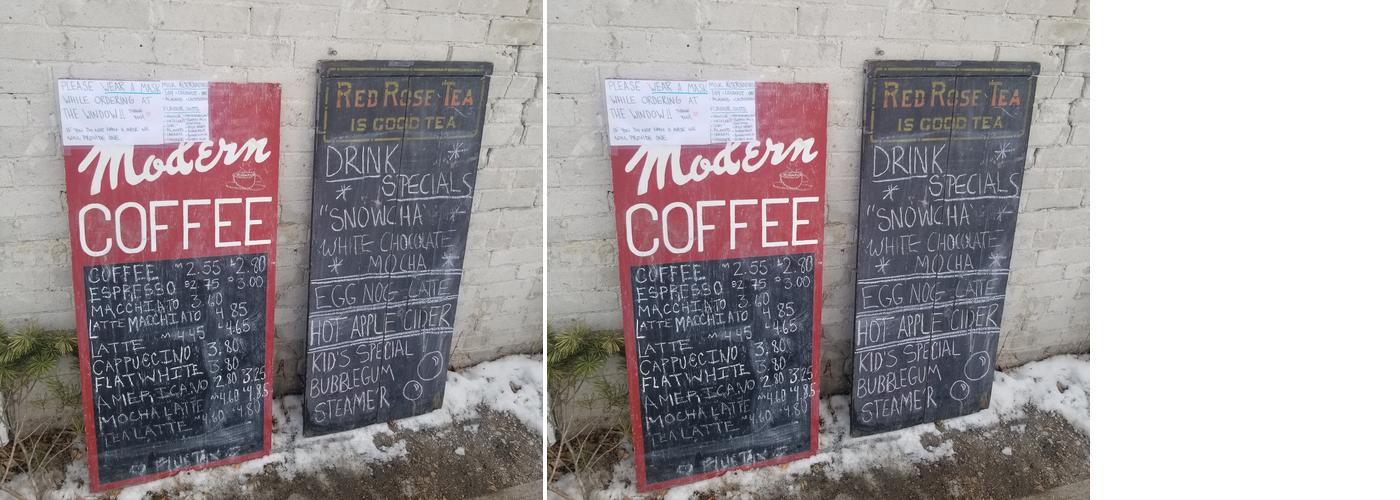 PLEASE WEAR A MASK
WHILE ORDERING AT
THE WINDOW!!
THANK YOU!
IF YOU DO NOT HAVE A MASK WE
WILL PROVIDE ONE
MILK ALTERNATIVES
Modern
COFFEE
COFFEE 2.55 2.80
ESPRESSO 2.75 3.00
MACCHIATO 3.60
LATTE MACCHIATO 4.85
LATTE 4.45 4.65
CAPPUCCINO 3.80
FLAT WHITE 3.80
AMERICANO 2.80 3.25
MOCHA LATTE 4.60 4.85
TEA LATTE 4.60 4.80
PLUS TAX
RED ROSE TEA
IS GOOD TEA
DRINK
SPECIALS
"SNOWCHA"
WHITE CHOCOLATE
MOCHA
EGG NOG LATTE
HOT APPLE CIDER
KID'S SPECIAL
BUBBLEGUM
STEAMER
PLEASE WEAR A MASK
WHILE ORDERING AT
THE WINDOW!!
THANK YOU!
IF YOU DO NOT HAVE A MASK WE
WILL PROVIDE ONE
MILK ALTERNATIVES
Modern
COFFEE
COFFEE 2.55 2.80
ESPRESSO 2.75 3.00
MACCHIATO 3.60
LATTE MACCHIATO 4.85
LATTE 4.45 4.65
CAPPUCCINO 3.80
FLAT WHITE 3.80
AMERICANO 2.80 3.25
MOCHA LATTE 4.60 4.85
TEA LATTE 4.60 4.80
PLUS TAX
RED ROSE TEA
IS GOOD TEA
DRINK
SPECIALS
"SNOWCHA"
WHITE CHOCOLATE
MOCHA
EGG NOG LATTE
HOT APPLE CIDER
KID'S SPECIAL
BUBBLEGUM
STEAMER